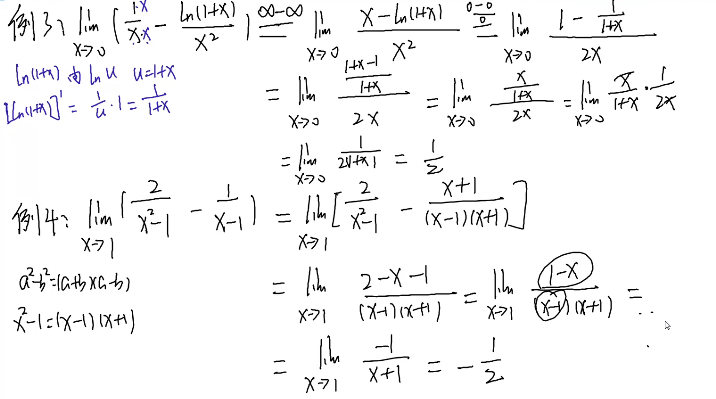 例3: lim x→0 (1·x/x·x − ln(1+x)/x²) =(∞−∞)= lim x→0 (x−ln(1+x))/x² =(0−0/0)= lim x→0 (1 − 1/(1+x))/2x
ln(1+x) 由 ln u u=1+x
[ln(1+x)]' = 1/u · 1 = 1/(1+x)
= lim x→0 ((1+x−1)/(1+x))/2x = lim x→0 (x/(1+x))/2x = lim x→0 x/(1+x) · 1/2x
= lim x→0 1/2(1+x) = 1/2
例4: lim x→1 (2/(x²−1) − 1/(x−1)) = lim x→1 [2/(x²−1) − (x+1)/(x−1)(x+1)]
a²−b²=(a+b)(a−b)
x²−1=(x−1)(x+1)
= lim x→1 (2−x−1)/(x−1)(x+1) = lim x→1 (1−x)/(x−1)(x+1) = ..
= lim x→1 −1/(x+1) = −1/2